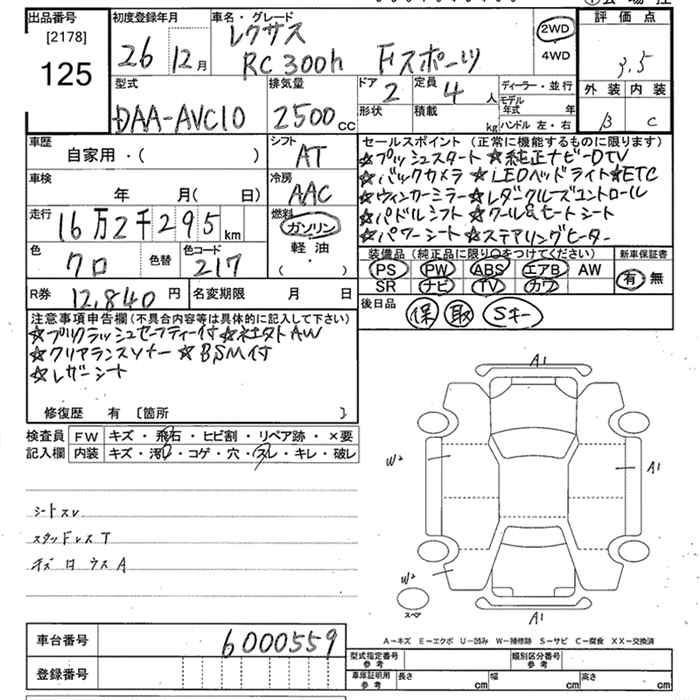 出品番号 初度登録年月 車名・グレード
[2178] 125 26 12月 レクサス
RC 300h Fスポーツ
2WD
4WD
評価点
3.5
外装 内装
B C
型式 排気量 ドア 定員 ディーラー・並行
DAA-AVC10 2500cc 2 4人
形状 積載 kg
モデル年式 年
ハンドル 左・右
車歴 自家用・( )
シフト AT
車検 年 月(日)
冷房 AAC
走行 16万2千295km
燃料 ガソリン
軽油
( ・ )
色 クロ 色替 色コード 217
R券 12,840円 名変期限 月 日
セールスポイント(正常に機能するものに限ります)
☆プッシュスタート ☆純正ナビ-DTV
☆バックカメラ ☆LEDヘッドライト ☆ETC
☆ウィンカーミラー ☆レダクルーズコントロール
☆パドルシフト ☆クール&ヒートシート
☆パワーシート ☆ステアリングヒーター
装備品(純正品に限り○をつけてください) 新車保証書
PS PW ABS エアB AW 有・無
SR ナビ TV カワ
後日品 保 取 Sキー
注意事項申告欄(不具合内容等は具体的に記入して下さい)
☆プリクラッシュセーフティー付 ☆社外AW
☆クリアランスソナー ☆BSM付
☆レザーシート
修復歴 有〔箇所 〕
検査員 FW キズ・飛石・ヒビ割・リペア跡・×要
記入欄 内装 キズ・汚・コゲ・穴・スレ・キレ・破レ
シートスレ
スタッドレス T
キズ
A
A1
W2
A1
W2
スペア
A1
A-キズ E-エクボ U-凹み W-補修跡 S-サビ C-腐食 XX-交換済
車台番号 6000559
登録番号
型式指定番号 参考 類別区分番号 参考
車庫証明用 参考 長さ cm 幅 cm 高さ cm